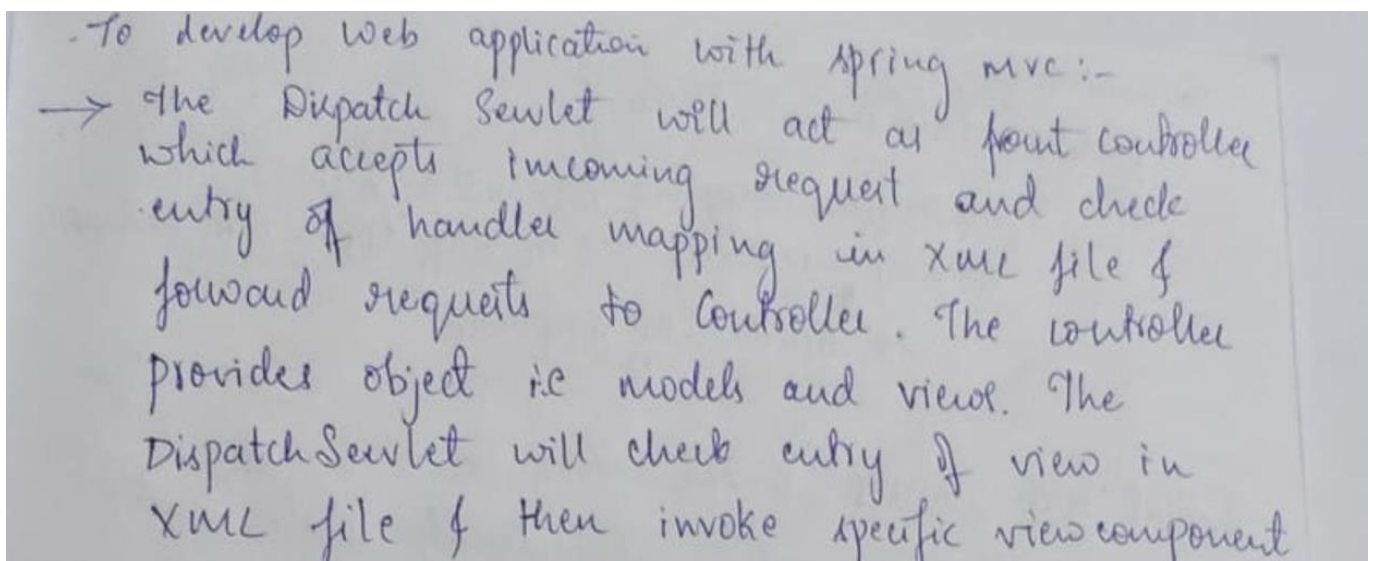 . To develop web application with spring mvc :-
→ The Dispatch Servlet will act as front controller
which accepts imcoming request and check
entry of handler mapping in XML file &
forward requests to Controller. The controller
provides object i.e models and views. The
DispatchServlet will check entry of view in
XML file & then invoke specific view component